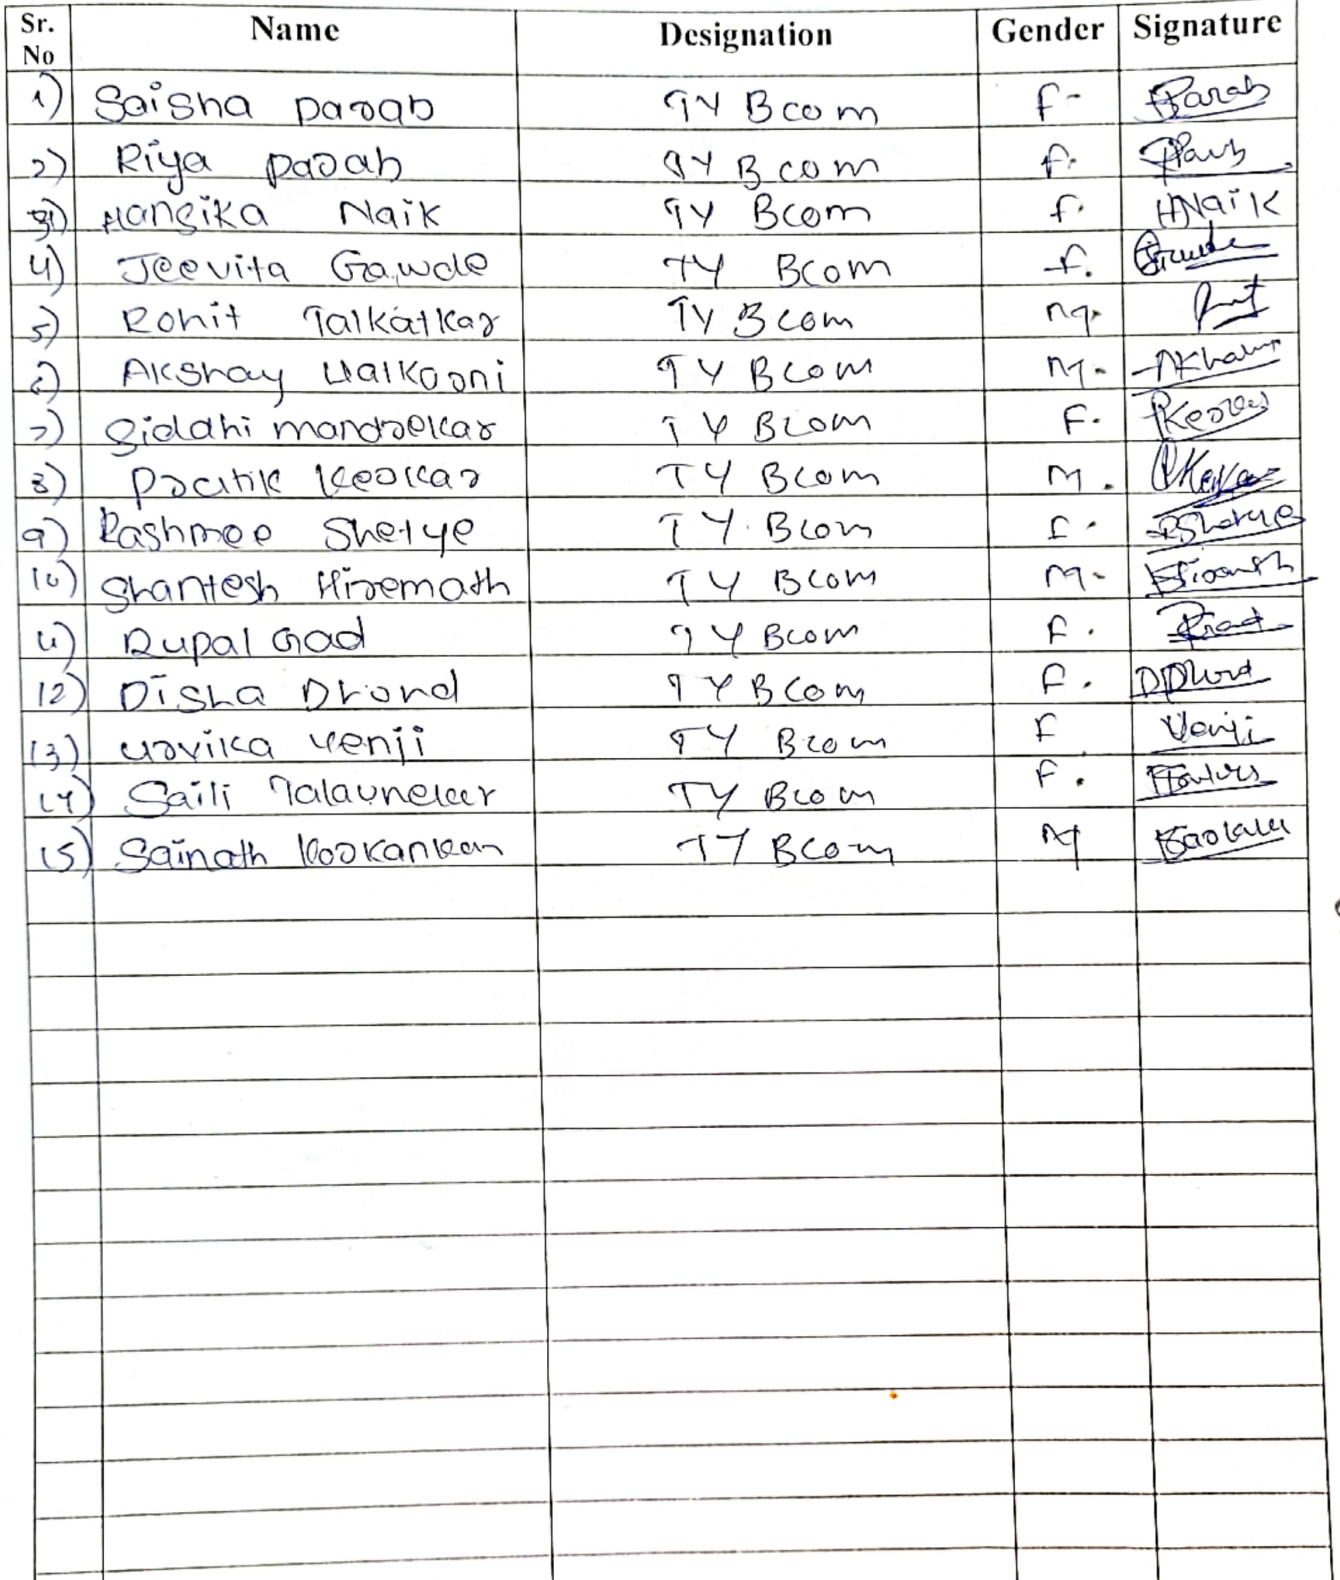 Sr. No Name Designation Gender Signature
1) Saisha Parab TY Bcom F- Parab
2) Riya Parab TY Bcom f.
3) Hansika Naik TY Bcom f. HNaik
4) Jeevita Gawde TY Bcom f.
5) Rohit Talkatkar TY Bcom M.
6) Akshay Halkarni TY Bcom M.
7) Siddhi mandrekar TY Bcom F.
8) Pratik Kerkar TY Bcom M.
9) Rashmee Shetye TY. Bcom F.
10) Shantesh Hiremath TY Bcom M.
11) Rupal Gad TY Bcom F.
12) Disha Dhond TY Bcom F. DDhond
13) Urvika Venji TY Bcom F Venji
14) Saili TY Bcom F.
15) Sainath TY Bcom M